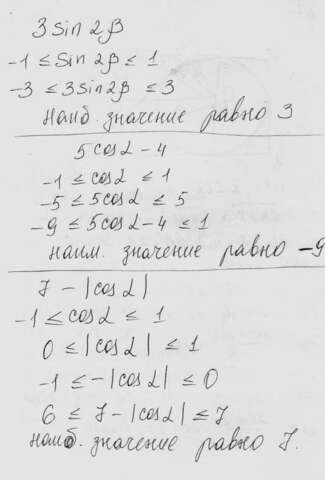 3 sin 2β
-1 ≤ sin 2β ≤ 1
-3 ≤ 3 sin 2β ≤ 3
Наиб. значение равно 3
5 cos α - 4
-1 ≤ cos α ≤ 1
-5 ≤ 5 cos α ≤ 5
-9 ≤ 5 cos α - 4 ≤ 1
наим. значение равно -9
7 - |cos α|
-1 ≤ cos α ≤ 1
0 ≤ |cos α| ≤ 1
-1 ≤ -|cos α| ≤ 0
6 ≤ 7 - |cos α| ≤ 7
наиб. значение равно 7.